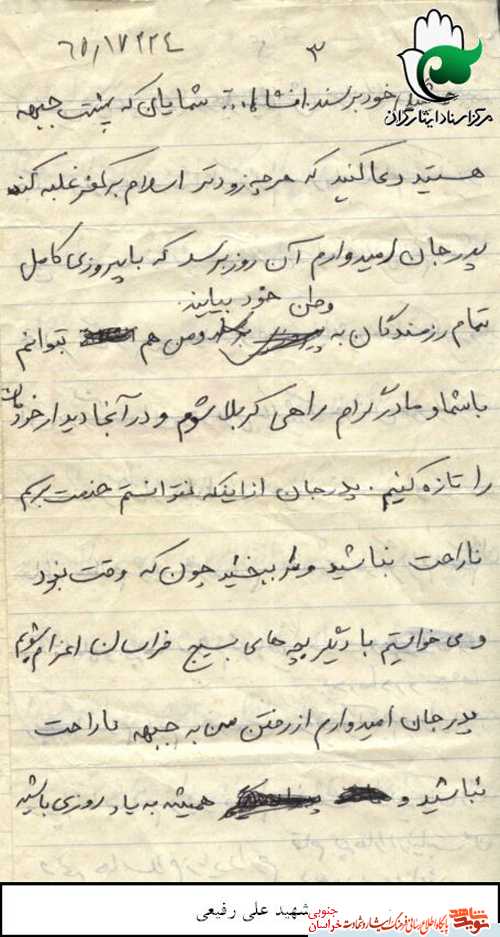 ۶۵/۱۷۲۲۴
۳
مرکز اسناد ایثارگران
خود برسند. انشاا... شمایای که پشت جبهه
هستید دعا کنید که هرچه زودتر اسلام بر کفر غلبه کند
پدر جان امیدوارم آن روز برسد که با پیروزی کامل
وطن خود بیایند.
تمام رزمندگان به و من هم بتوانم
باشما و مادر گرام راهی کربلا شوم و در آنجا دیدار خودمان
را تازه کنیم. پدر جان از اینکه نتوانستم خدمت برسم
ناراحت نباشید و مرا ببخشید چون که وقت نبود
و می خواستیم با دیگر بچه های بسیج خراسان اعزام شویم
پدر جان امیدوارم از رفتن من به جبهه ناراحت
نباشید و همیشه به یاد روزی باشید
شهید علی رفیعی
نوید شاهد پایگاه اطلاع رسانی فرهنگ ایثار و شهادت خراسان جنوبی